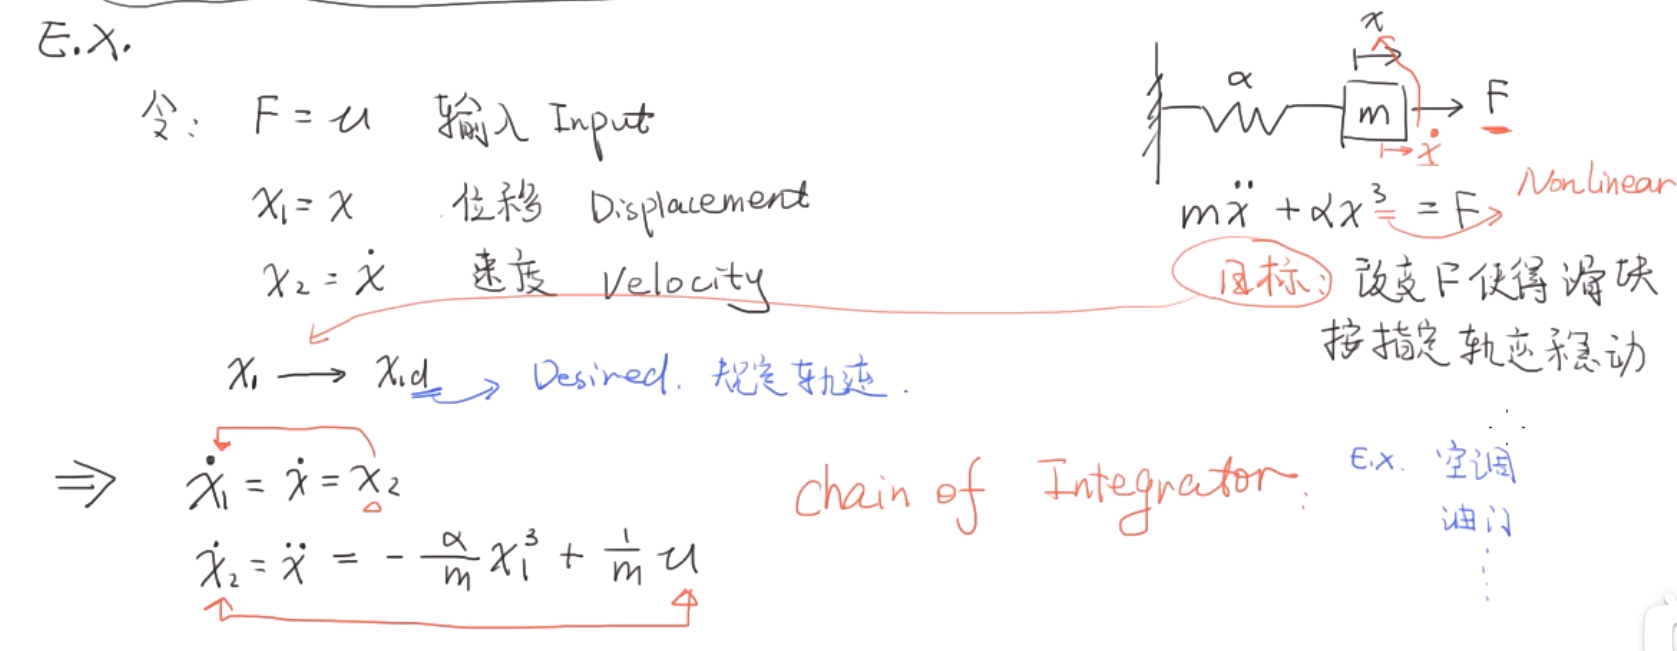 E.X.
令: F = u 输入 Input
x₁ = x 位移 Displacement
x₂ = ẋ 速度 Velocity
x₁ → x₁d → Desired. 规定轨迹.
⇒ ẋ₁ = ẋ = x₂
ẋ₂ = ẍ = - α/m x₁³ + 1/m u
Chain of Integrator:
x
α
m
F
ẋ
mẍ + αx³ = F
Nonlinear
目标: 改变F使得滑块
按指定轨迹移动
E.x. 空调
油门
⋮